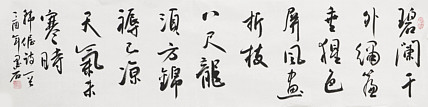 碧阑干
外绣簾
垂猩色
屏风画
折枝
八尺龙
须方锦
褥已凉
天气未
寒时
韩偓诗一首